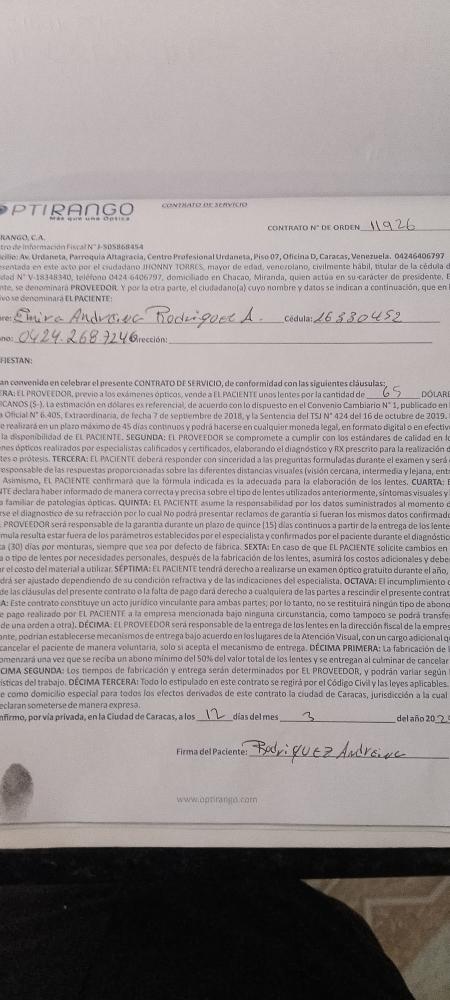 OPTIRANGO
Más que una Óptica
CONTRATO DE SERVICIO
CONTRATO N° DE ORDEN 11926
RANGO, C.A.
tro de Información Fiscal N° J-505868454
cilio: Av. Urdaneta, Parroquia Altagracia, Centro Profesional Urdaneta, Piso 07, Oficina D, Caracas, Venezuela. 04246406797
sentada en este acto por el ciudadano JHONNY TORRES, mayor de edad, venezolano, civilmente hábil, titular de la cédula d
dad N° V-18348340, teléfono 0424-6406797, domiciliado en Chacao, Miranda, quien actúa en su carácter de presidente. E
nte, se denominará PROVEEDOR. Y por la otra parte, el ciudadano(a) cuyo nombre y datos se indican a continuación, que en l
ivo se denominará EL PACIENTE:
re: Emira Andreina Rodriguez A. Cédula: 16330452
no: 0424.2687246 Dirección:
FIESTAN:
an convenido en celebrar el presente CONTRATO DE SERVICIO, de conformidad con las siguientes cláusulas:
ERA: EL PROVEEDOR, previo a los exámenes ópticos, vende a EL PACIENTE unos lentes por la cantidad de 65 DÓLARE
ICANOS ($-). La estimación en dólares es referencial, de acuerdo con lo dispuesto en el Convenio Cambiario N° 1, publicado en
a Oficial N° 6.405, Extraordinaria, de fecha 7 de septiembre de 2018, y la Sentencia del TSJ N° 424 del 16 de octubre de 2019.
e realizará en un plazo máximo de 45 días continuos y podrá hacerse en cualquier moneda legal, en formato digital o en efectiv
la disponibilidad de EL PACIENTE. SEGUNDA: EL PROVEEDOR se compromete a cumplir con los estándares de calidad en lo
nes ópticos realizados por especialistas calificados y certificados, elaborando el diagnóstico y RX prescrito para la realización d
tes o prótesis. TERCERA: EL PACIENTE deberá responder con sinceridad a las preguntas formuladas durante el examen y será
responsable de las respuestas proporcionadas sobre las diferentes distancias visuales (visión cercana, intermedia y lejana, entr
Asimismo, EL PACIENTE confirmará que la fórmula indicada es la adecuada para la elaboración de los lentes. CUARTA: E
NTE declara haber informado de manera correcta y precisa sobre el tipo de lentes utilizados anteriormente, síntomas visuales y
a familiar de patologías ópticas. QUINTA: EL PACIENTE asume la responsabilidad por los datos suministrados al momento d
rse el diagnóstico de su refracción por lo cual No podrá presentar reclamos de garantía si fueran los mismos datos confirmad
PROVEEDOR será responsable de la garantía durante un plazo de quince (15) días continuos a partir de la entrega de los lente
mula resulta estar fuera de los parámetros establecidos por el especialista y confirmados por el paciente durante el diagnóstic
ta (30) días por monturas, siempre que sea por defecto de fábrica. SEXTA: En caso de que EL PACIENTE solicite cambios en
e o tipo de lentes por necesidades personales, después de la fabricación de los lentes, asumirá los costos adicionales y debe
ar el costo del material a utilizar. SÉPTIMA: EL PACIENTE tendrá derecho a realizarse un examen óptico gratuito durante el año,
drá ser ajustado dependiendo de su condición refractiva y de las indicaciones del especialista. OCTAVA: El incumplimiento d
de las cláusulas del presente contrato o la falta de pago dará derecho a cualquiera de las partes a rescindir el presente contrat
A: Este contrato constituye un acto jurídico vinculante para ambas partes; por lo tanto, no se restituirá ningún tipo de abono
e pago realizado por EL PACIENTE a la empresa mencionada bajo ninguna circunstancia, como tampoco se podrá transfe
de una orden a otra). DÉCIMA: EL PROVEEDOR será responsable de la entrega de los lentes en la dirección fiscal de la empres
ante, podrían establecerse mecanismos de entrega bajo acuerdo en los lugares de la Atención Visual, con un cargo adicional q
cancelar el paciente de manera voluntaria, solo si acepta el mecanismo de entrega. DÉCIMA PRIMERA: La fabricación de l
omenzará una vez que se reciba un abono mínimo del 50% del valor total de los lentes y se entregan al culminar de cancelar
CIMA SEGUNDA: Los tiempos de fabricación y entrega serán determinados por EL PROVEEDOR, y podrán variar según
ísticas del trabajo. DÉCIMA TERCERA: Todo lo estipulado en este contrato se regirá por el Código Civil y las leyes aplicables.
e como domicilio especial para todos los efectos derivados de este contrato la ciudad de Caracas, jurisdicción a la cual
eclaran someterse de manera expresa.
nfirmo, por vía privada, en la Ciudad de Caracas, a los 12 días del mes 3 del año 202
Firma del Paciente: Rodriguez Andreina
www.optirango.com